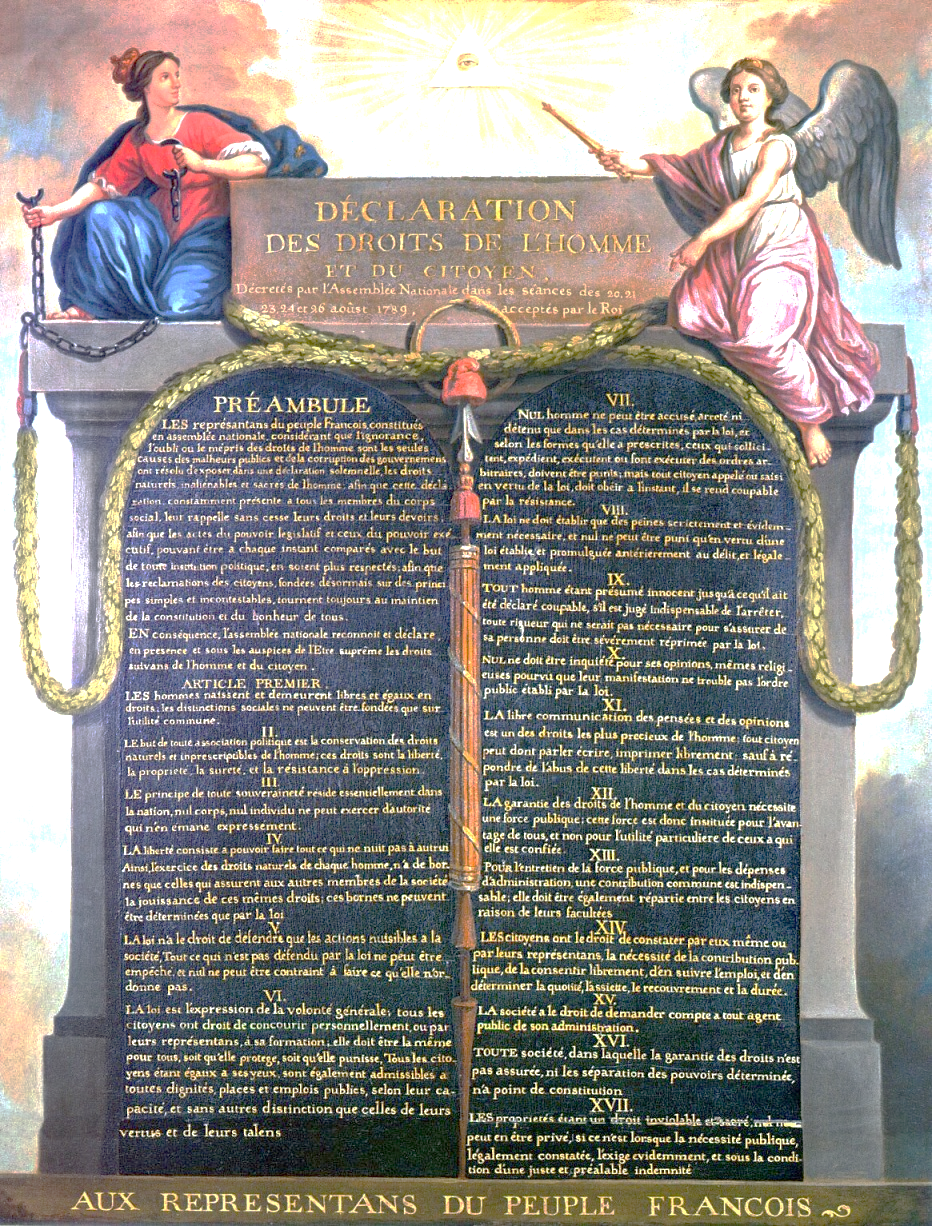 DÉCLARATION
DES DROITS DE L'HOMME
ET DU CITOYEN,
Décretés par l'Assemblée Nationale dans les séances des 20, 21
23, 24 et 26 août 1789, acceptés par le Roi
PRÉAMBULE
LES représantans du peuple Francois, constitués
en assemblée nationale, considérant que l'ignorance,
l'oubli ou le mépris des droits de l'homme sont les seules
causes des malheurs publics et de la corruption des gouvernemens
ont résolu d'exposer dans une déclaration solemnelle, les droits
naturels, inaliénables et sacrés de l'homme; afin que cette décla
ration, constamment présente a tous les membres du corps
social, leur rappelle sans cesse leurs droits et leurs devoirs,
afin que les actes du pouvoir legislatif et ceux du pouvoir exé
cutif, pouvant être a chaque instant comparés avec le but
de toute institution politique, en soient plus respectés; afin que
les reclamations des citoyens, fondées désormais sur des princi
pes simples et incontestables, tournent toujours au maintien
de la constitution et du bonheur de tous.
EN conséquence, l'assemblée nationale reconnoit et déclare
en presence et sous les auspices de l'Etre suprême les droits
suivans de l'homme et du citoyen.
ARTICLE PREMIER
LES hommes naissent et demeurent libres et égaux en
droits, les distinctions sociales ne peuvent être fondées que sur
l'utilité commune.
II.
LE but de toute association politique est la conservation des droits
naturels et inprescripubles de l'homme; ces droits sont la liberté,
la proprieté, la sureté, et la résistance à l'oppression.
III.
LE principe de toute souveraineté réside essentiellement dans
la nation, nul corps, nul individu ne peut exercer d'autorité
qui n'en émane expressement.
IV
LA liberté consiste a pouvoir faire tout ce qui ne nuit pas à autrui
Ainsi, l'exercice des droits naturels de chaque homme, n'a de bor-
nes que celles qui assurent aux autres membres de la société
la jouissance de ces mêmes droits; ces bornes ne peuvent
être déterminées que par la loi
V.
LA loi n'a le droit de défendre que les actions nuisibles a la
société, Tout ce qui n'est pas défendu par la loi ne peut être
empêché, et nul ne peut être contraint à faire ce qu'elle n'or-
donne pas.
VI.
LA loi est l'expression de la volonté générale; tous les
citoyens ont droit de concourir personnellement, ou par
leurs représentans, à sa formation; elle doit être la même
pour tous, soit qu'elle protege, soit qu'elle punisse, Tous les cito-
yens étant égaux à ses yeux, sont également admissibles a
toutes dignités, places et emplois publics, selon leur ca-
pacité, et sans autres distinction que celles de leurs
vertus et de leurs talens
VII.
NUL homme ne peut être accusé, arreté, ni
détenu que dans les cas déterminés par la loi, et
selon les formes qu'elle a prescrites, ceux qui sollici-
tent, expédient, exécutent ou font exécuter des ordres ar-
bitraires, doivent être punis; mais tout citoyen appelé ou saisi
en vertu de la loi, doit obéir a l'instant, il se rend coupable
par la résistance.
VIII.
LA loi ne doit établir que des peines strictement et évidem-
ment nécessaire, et nul ne peut être puni qu'en vertu d'une
loi établie et promulguée antérierement au délit, et légale-
ment appliquée.
IX.
TOUT homme étant présumé innocent jusqu'a ce qu'il ait
été déclaré coupable, s'il est jugé indispensable de l'arrêter,
toute rigueur qui ne serait pas nécessaire pour s'assurer de
sa personne doit être sévèrement réprimée par la loi.
X.
NUL ne doit être inquiété pour ses opinions, mêmes religi-
euses pourvu que leur manifestation ne trouble pas l'ordre
public établi par la loi.
XI.
LA libre communication des pensées et des opinions
est un des droits les plus precieux de l'homme; tout citoyen
peut donc parler écrire, imprimer librement sauf à ré-
pondre de l'abus de cette liberté dans les cas déterminés
par la loi.
XII.
LA garantie des droits de l'homme et du citoyen nécessite
une force publique; cette force est donc instituée pour l'avan-
tage de tous, et non pour l'utilité particuliere de ceux a qui
elle est confiée.
XIII.
POUR l'entretien de la force publique, et pour les dépenses
d'administration, une contribution commune est indispen-
sable; elle doit être également répartie entre les citoyens en
raison de leurs facultées
XIV.
LES citoyens ont le droit de constater par eux même ou
par leurs représentans, la nécessité de la contribution pub-
lique, de la consentir librement, d'en suivre l'emploi, et d'en
déterminer la quotité, l'assiette, le recouvrement et la durée.
XV.
LA société a le droit de demander compte a tout agent
public de son administration.
XVI.
TOUTE société, dans laquelle la garantie des droits n'est
pas assurée, ni les séparation des pouvoirs déterminée,
n'a point de constitution
XVII.
LES proprietés étant un droit inviolable et sacré, nul ne
peut en être privé; si ce n'est lorsque la nécessité publique,
légalement constatée, l'exige evidemment, et sous la condi-
tion d'une juste et préalable indemnité
AUX REPRESENTANS DU PEUPLE FRANCOIS